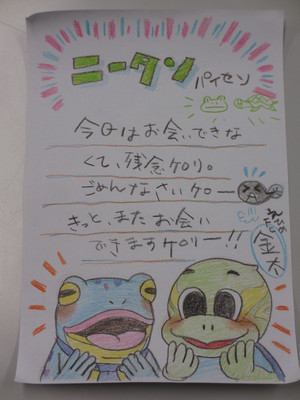 ニータン
パイセン
今日はお会いできな
くて、残念ケロリ。
ごめんなさいケロー
きっと、またお会い
できますケロリー!!
金太